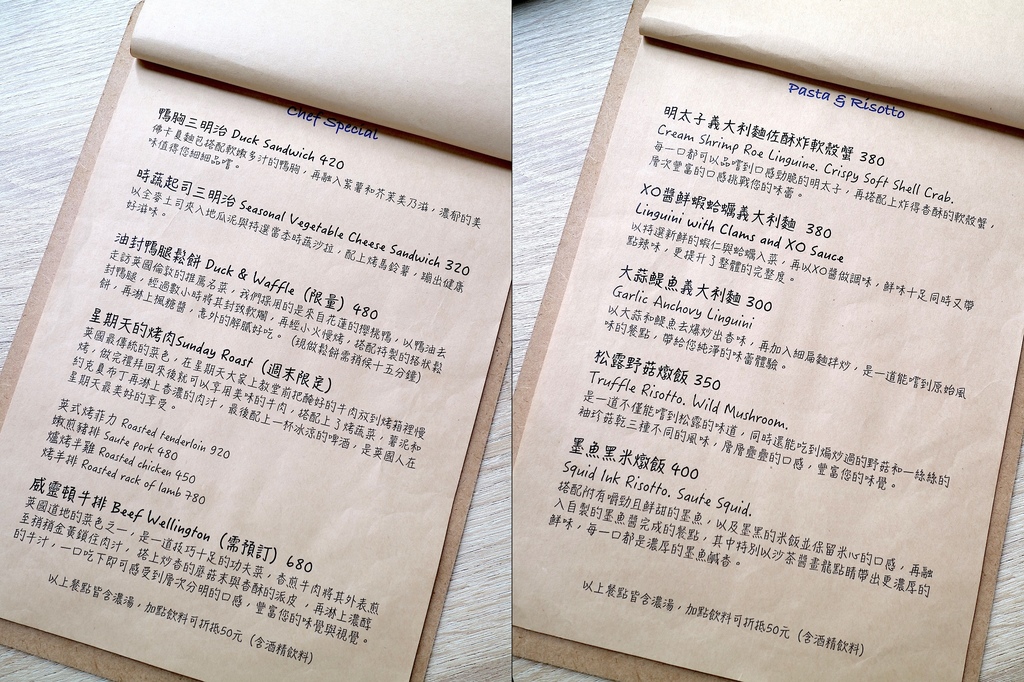 Chef Special
鴨胸三明治 Duck Sandwich 420
佛卡夏麵包搭配軟嫩多汁的鴨胸，再融入紫薯和芥茉美乃滋，濃郁的美
味值得您細細品嚐。
時蔬起司三明治 Seasonal Vegetable Cheese Sandwich 320
以全麥土司夾入地瓜泥與特選當季時蔬沙拉，配上烤馬鈴薯，蹦出健康
好滋味。
油封鴨腿鬆餅 Duck & Waffle（限量）480
走訪英國倫敦的推薦名菜，我們採用的是來自花蓮的櫻桃鴨，以鴨油去
封鴨腿，經過數小時將其封致軟嫩，再經小火慢烤，搭配特製的格狀鬆
餅，再淋上楓糖醬，意外的解膩好吃。（現做鬆餅需稍候十五分鐘）
星期天的烤肉Sunday Roast（週末限定）
英國最傳統的菜色，在星期天大家上教堂前把醃好的牛肉放到烤箱裡慢
烤，做完禮拜回來後就可以享用美味的牛肉，搭配上了烤蔬菜，薯泥和
約克夏布丁再淋上香濃的肉汁，最後配上一杯冰涼的啤酒，是英國人在
星期天最美好的享受。
英式烤菲力 Roasted tenderloin 920
嫩煎豬排 Saute pork 480
爐烤半雞 Roasted chicken 450
烤羊排 Roasted rack of lamb 780
威靈頓牛排 Beef Wellington（需預訂）680
英國道地的菜色之一，是一道技巧十足的功夫菜，香煎牛肉將其外表煎
至稍稍金黃鎖住肉汁，搭上炒香的蘑菇末與香酥的派皮，再淋上濃醇
的牛汁，一口吃下即可感受到層次分明的口感，豐富您的味覺與視覺。
以上餐點皆含濃湯，加點飲料可折抵50元（含酒精飲料）
Pasta & Risotto
明太子義大利麵佐酥炸軟殼蟹 380
Cream Shrimp Roe Linguine. Crispy Soft Shell Crab.
每一口都可以品嚐到口感勁脆的明太子，再搭配上炸得香酥的軟殼蟹，
層次豐富的口感挑戰您的味蕾。
XO醬鮮蝦蛤蠣義大利麵 380
Linguini with Clams and XO Sauce
以特選新鮮的蝦仁與蛤蠣入菜，再以XO醬做調味，鮮味十足同時又帶
點辣味，更提升了整體的完整度。
大蒜鯷魚義大利麵 300
Garlic Anchovy Linguini
以大蒜和鯷魚去煸炒出香味，再加入細扁麵拌炒，是一道能嚐到原始風
味的餐點，帶給您純淨的味蕾體驗。
松露野菇燉飯 350
Truffle Risotto. Wild Mushroom.
是一道不僅能嚐到松露的味道，同時還能吃到煸炒過的野菇和一絲絲的
袖珍菇乾三種不同的風味，層層疊疊的口感，豐富您的味覺。
墨魚黑米燉飯 400
Squid Ink Risotto. Saute Squid.
搭配附有嚼勁且鮮甜的墨魚，以及墨黑的米飯並保留米心的口感，再融
入自製的墨魚醬完成的餐點，其中特別以沙茶醬畫龍點睛帶出更濃厚的
鮮味，每一口都是濃厚的墨魚鹹香。
以上餐點皆含濃湯，加點飲料可折抵50元（含酒精飲料）